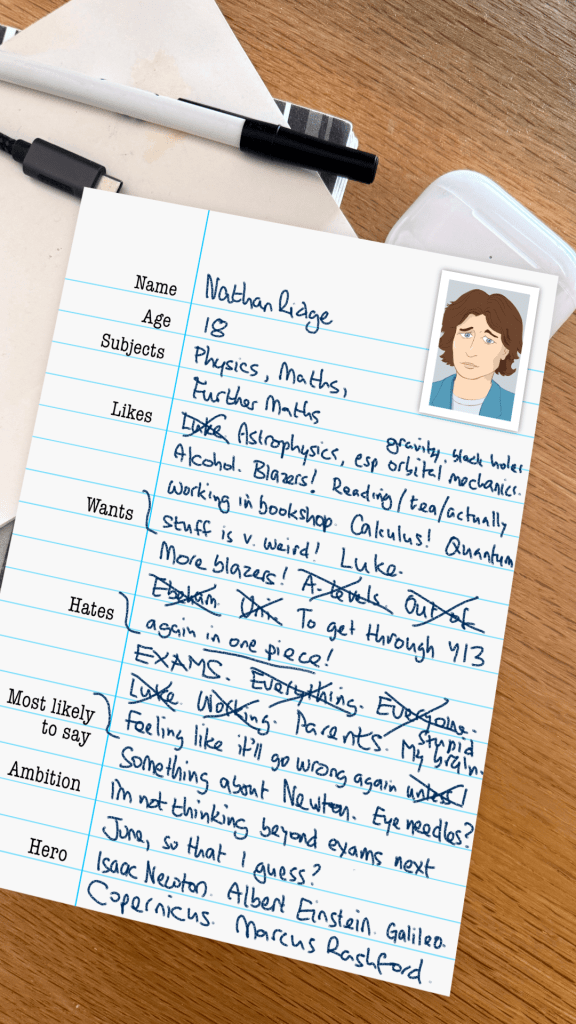 Name Nathan Ridge
Age 18
Subjects Physics, Maths,
Further Maths
gravity, black holes
Likes Luke Astrophysics, esp orbital mechanics.
Alcohol. Blazers! Reading/tea/actually
working in bookshop. Calculus! Quantum
Wants stuff is v. weird! Luke.
More blazers! A-levels. Out of
Ebeham. Uni. To get through Y13
Hates again in one piece!
EXAMS. Everything. Everyone.
Luke. Working. Parents. My stupid brain.
Most likely to say Feeling like it'll go wrong again unless I
Something about Newton. Eye needles?
Ambition I'm not thinking beyond exams next
June, so that I guess?
Hero Isaac Newton. Albert Einstein. Galileo.
Copernicus. Marcus Rashford.